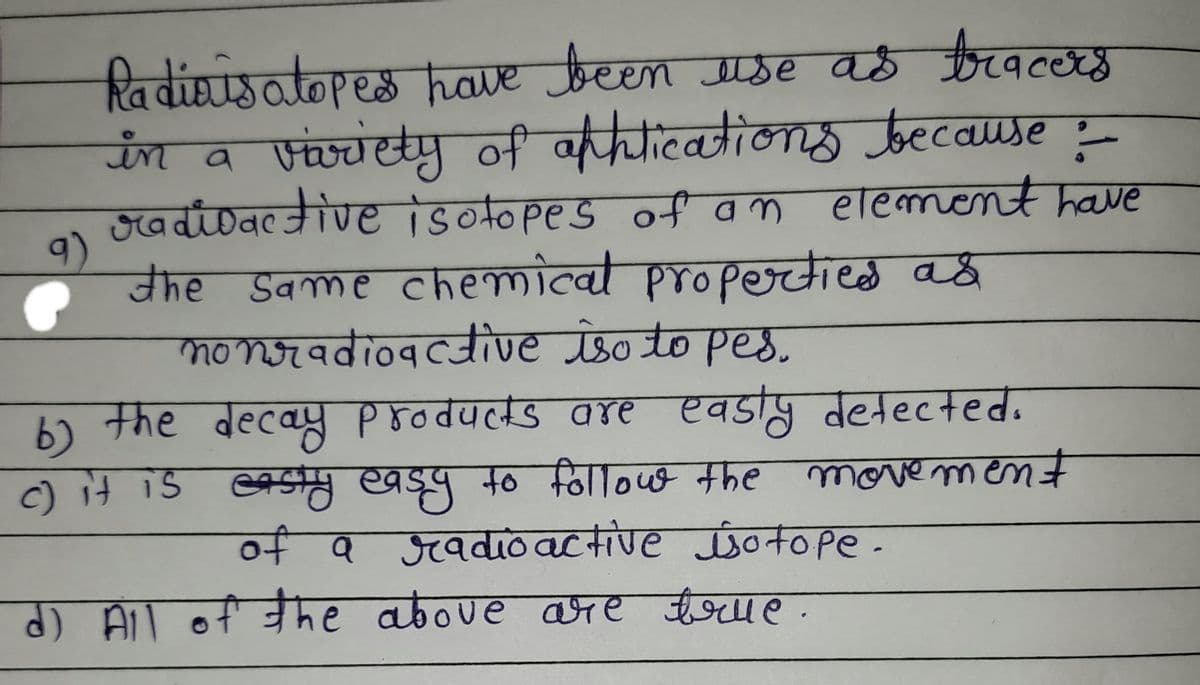 Radioisotopes have been use as tracers
in a variety of applications because :-
a) radioactive isotopes of an element have
the same chemical properties as
nonradioactive isotopes.
b) the decay products are easly detected.
c) it is easly easy to follow the movement
of a radioactive isotope.
d) All of the above are true.